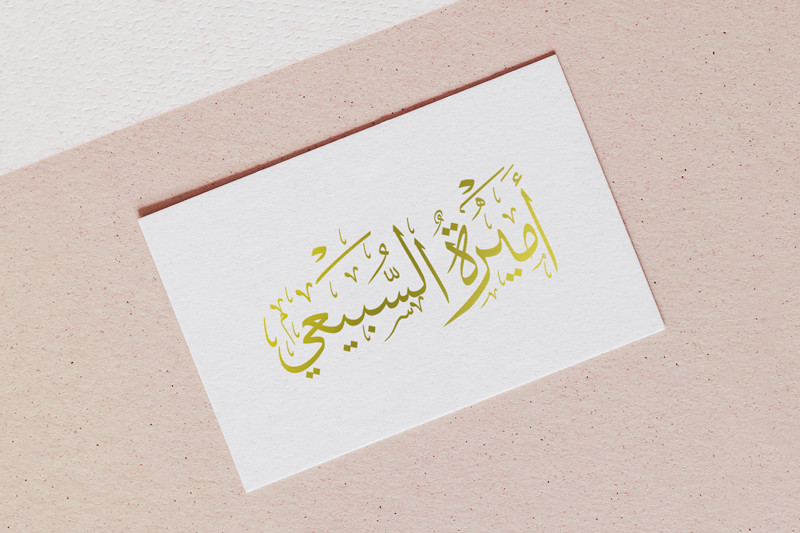 أميرة السبيعي